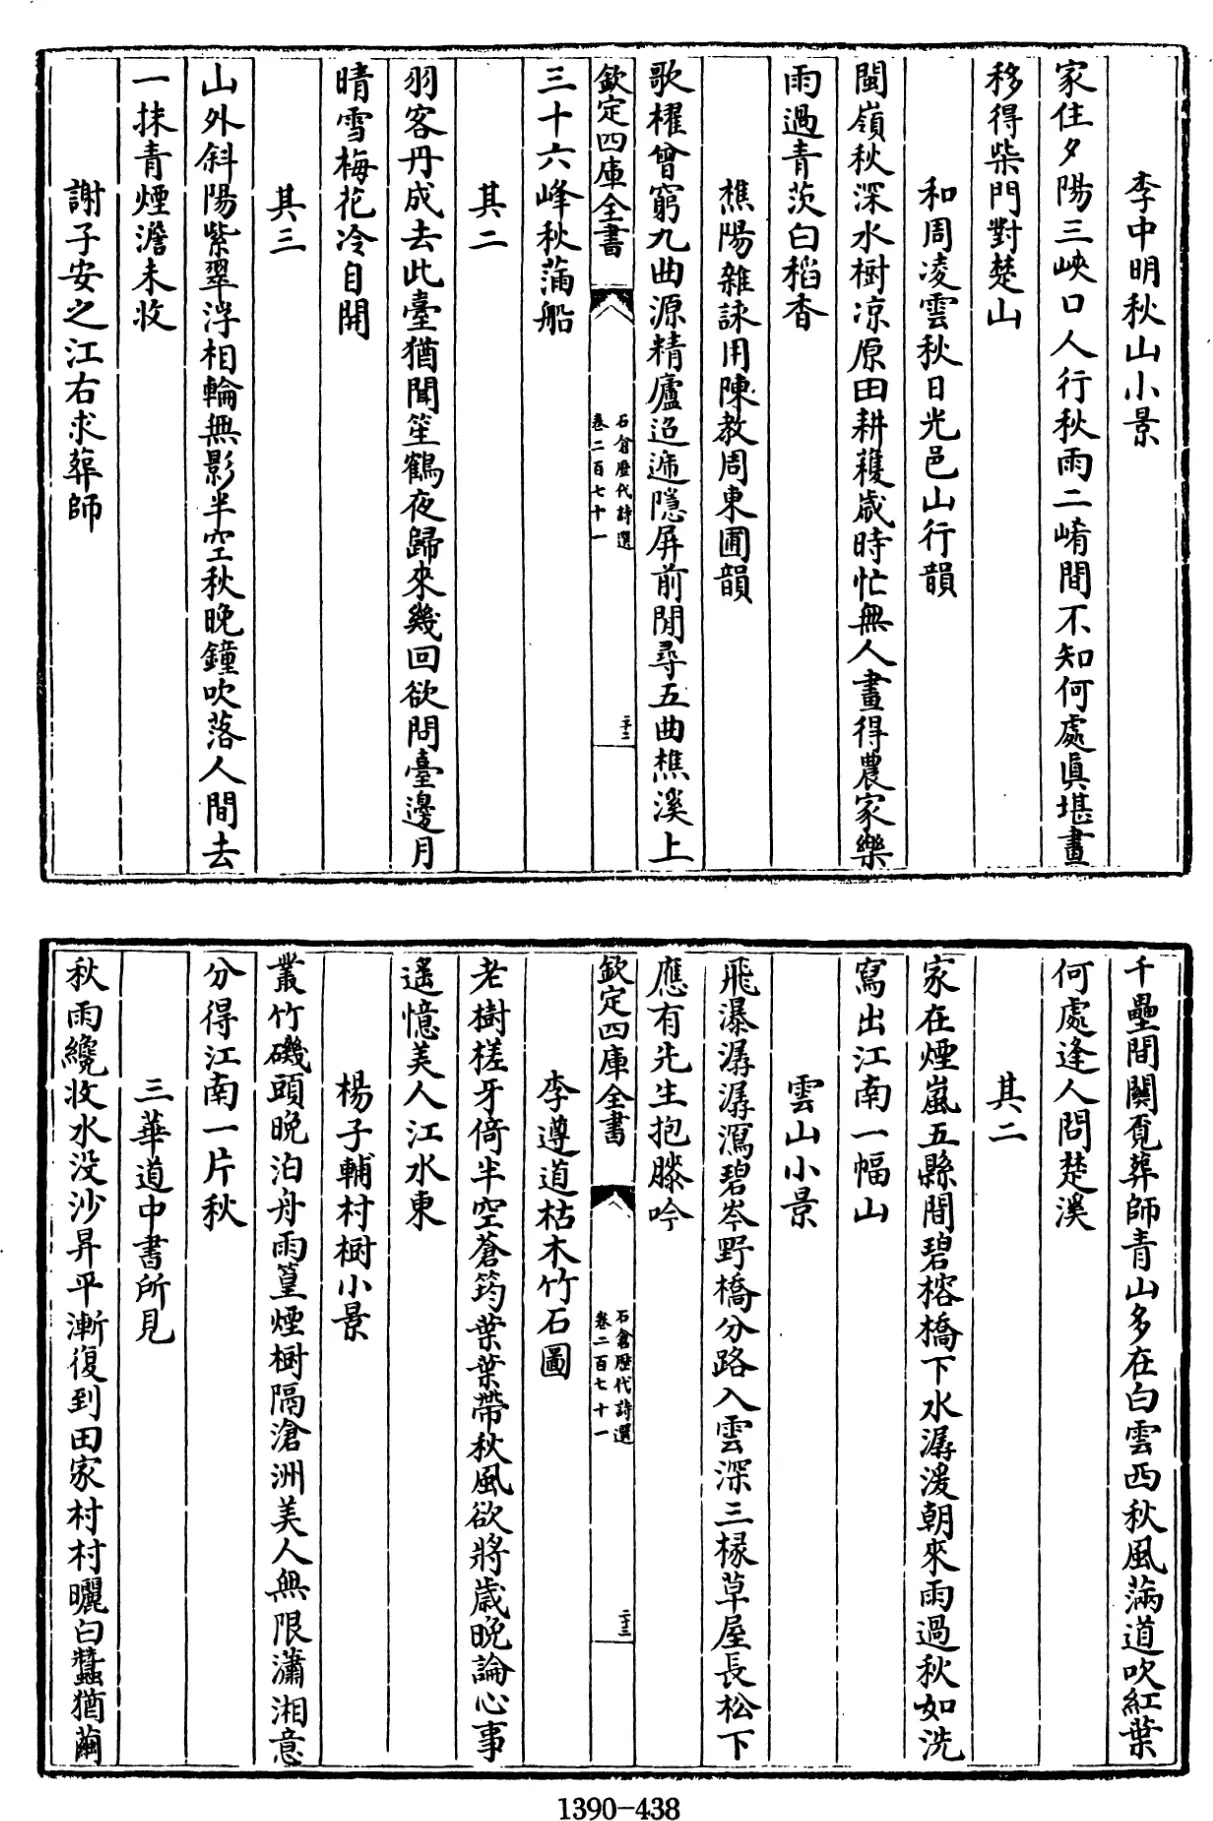 李中明秋山小景
家住夕陽三峽口人行秋雨二崤間不知何處真堪畫
移得柴門對楚山
和周凌雲秋日光邑山行韻
閩嶺秋深水樹凉原田耕穫歲時忙無人畫得農家樂
雨過青茨白稻香
樵陽雜詠用陳教周東圃韻
歌櫂曾窮九曲源精廬迢遞隱屏前閒尋五曲樵溪上
欽定四庫全書
石倉歷代詩選
卷二百七十一
二十二
三十六峰秋滿船
其二
羽客丹成去此臺猶聞笙鶴夜歸來幾回欲問臺邊月
晴雪梅花冷自開
其三
山外斜陽紫翠浮相輪無影半空秋晚鐘吹落人間去
一抹青煙澹未收
謝子安之江右求葬師
千壘間關覓葬師青山多在白雲西秋風滿道吹紅葉
何處逢人問楚溪
其二
家在煙嵐五縣間碧榕橋下水潺湲朝來雨過秋如洗
寫出江南一幅山
雲山小景
飛瀑潺潺瀉碧岑野橋分路入雲深三椽草屋長松下
應有先生抱膝吟
欽定四庫全書
石倉歷代詩選
卷二百七十一
二十三
李遵道枯木竹石圖
老樹槎牙倚半空蒼筠葉葉帶秋風欲將歲晚論心事
遥憶美人江水東
楊子輔村樹小景
叢竹磯頭晚泊舟雨篁煙樹隔滄洲美人無限瀟湘意
分得江南一片秋
三華道中書所見
秋雨纔收水没沙昇平漸復到田家村村曬白蠶猶繭
1390-438